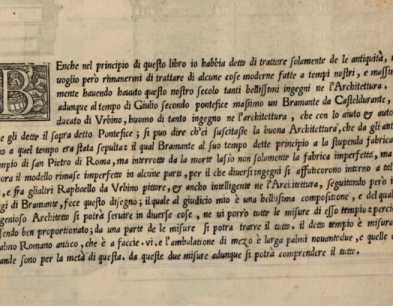 BEnche nel principio di questo libro io habbia detto di trattare solamente de le antiquità,
uoglio però rimanermi di trattare di alcune cose moderne fatte a tempi nostri, e massim
mente hauendo hauuto questo nostro secolo tanti bellissimi ingegni ne l'Architettura.
adunque al tempo di Giulio secondo pontefice massimo un Bramante da Casteldurante,
ducato di Vrbino, huomo di tanto ingegno ne l'architettura, che con lo aiuto & autor
e gli dette il sopra detto Pontefice; si puo dire ch'ei suscitasse la buona Architettura, che da gli ant
no a quel tempo era stata sepulta: il qual Bramante al suo tempo dette principio a la stupenda fabrica
mpio di san Pietro di Roma, ma interrotto da la morte lasciò non solamente la fabrica imperfetta, ma
ora il modello rimase imperfetto in alcune parti, per il che diuersi ingegni si affaticorono intorno a tal
, e fra gli altri Raphaello da Vrbino pittore, & ancho intelligente ne l'Architettura, seguitando però i
gi di Bramante, fece questo disegno; il quale al giudicio mio è una bellissima compositione, e del qual
ngenioso Architetto si potrà seruire in diuerse cose, ne ui porrò tutte le misure di esso tempio: percio
sendo ben proportionato; da una parte de le misure si potrà trarre il tutto. il detto tempio è misura
almo Romano antico, che è a faccie .vi. e l'ambulatione di mezo è larga palmi nouantadue, e quelle
ande sono per la metà di questa. da queste due misure adunque si potrà comprendere il tutto.